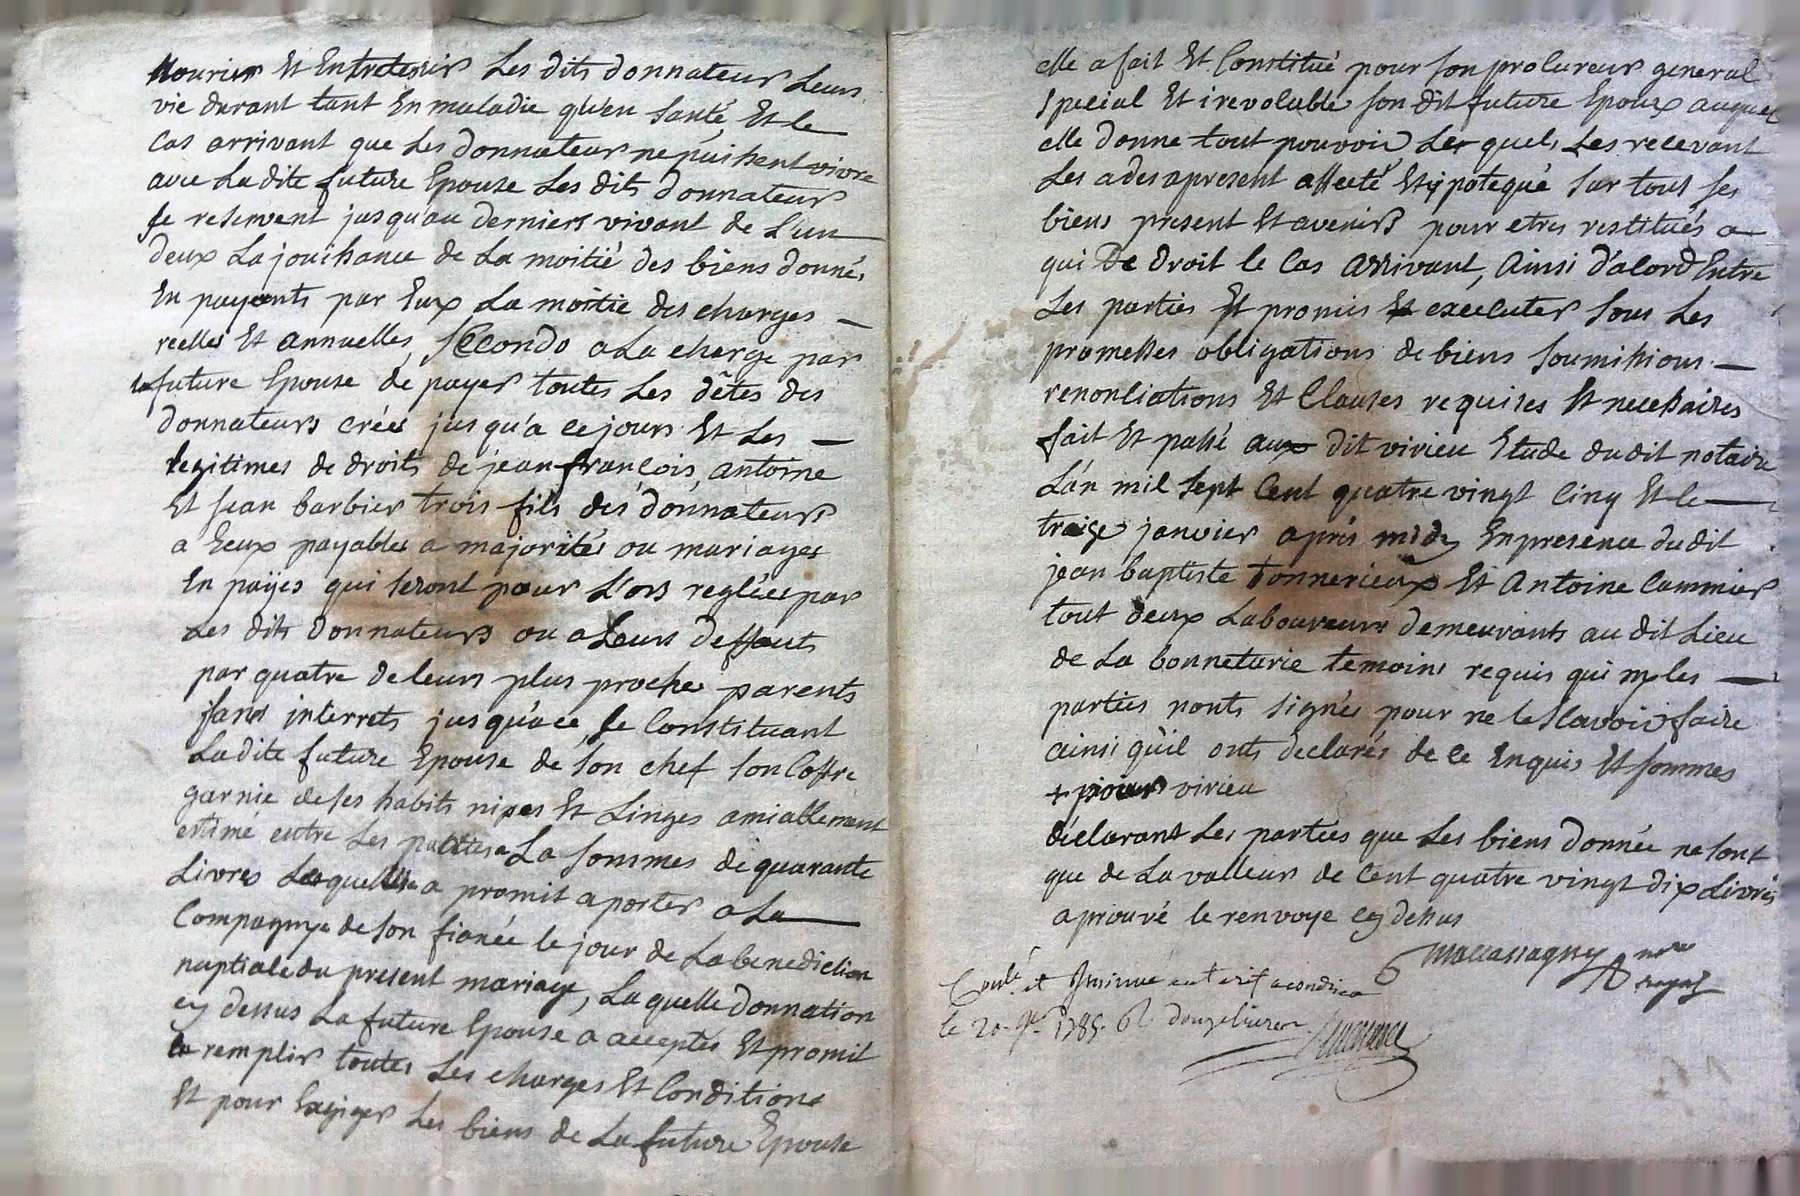 Nourir Et Entretenir Les dits donnateur Leurs
vie durant tant En maladie qu'en santé Et le
Cas arrivant que Les donnateur ne puissent vivre
avec La dite future Epouse Les dits donnateur
se reservent jusqu'au derniers vivant de L'un
deux La jouissance de La moitié des biens donnés
En payants par Eux La moitie des charges
reelles Et annuelles, secondo a La charge par
La future Epouse de payer toutes Les dêtes des
donnateurs crées jusqu'a ce jours Et Les
legitimes de droits de jean françois, antoine
Et jean barbier trois fils des donnateurs
a Eeux payables a majorités ou mariages
En payes qui seront pour L'ors reglées par
Les dits donnateurs ou a Leurs deffauts
par quatre de leurs plus proches parents
sans interrets jusqu'a ce, se Constituant
La dite future Epouse de son chef son Coffre
garnie de ses habits nipes Et Linges amiablement
estimé entre Les parties a La sommes de quarante
Livres Laquelle a promit aporter a La
Compagnye de son fiancée le jour de La benediction
nuptiale du present mariage, La quelle donnation
cy dessus La future Epouse a acceptés Et promit
de remplir toutes Les charges Et Conditions
Et pour Exiger Les biens de La future Epouse
elle a fait Et Constitué pour son procureur general
special Et irevocable son dit future Epoux auquel
elle donne tout pouvoir Les quels Les recevant
Les a des apresent affecté Et ypotequé sur tous ses
biens present Et avenirs pour etres restitués a
qui De droit le Cas arrivant, ainsi d'acord Entre
Les parties Et promis Et executer sous Les
promesses obligations de biens soumissions
renonciations Et Clauses requises Et necessaires
fait Et passé aux dit virieu Etude du dit notaire
L'an mil sept Cent quatre vingt Cinq Et le
traize janvier après midy En presence du dit
jean baptiste tonnerieux Et Antoine Cammier
tout deux Laboureurs demeurants au dit Lieu
de La bonneturie temoins requis qui ny les
parties nonts signés pour ne le scavoir faire
ainsi qu'il onts declarés de ce Enquis Et sommes
+ pour virieu
declarant Les parties que Les biens donnée ne sont
que de La valleur de Cent quatre vingt dix Livres
aprouvé le renvoye cy dessus
not.re
royal
Conlé et
le 20 1785. douze livres